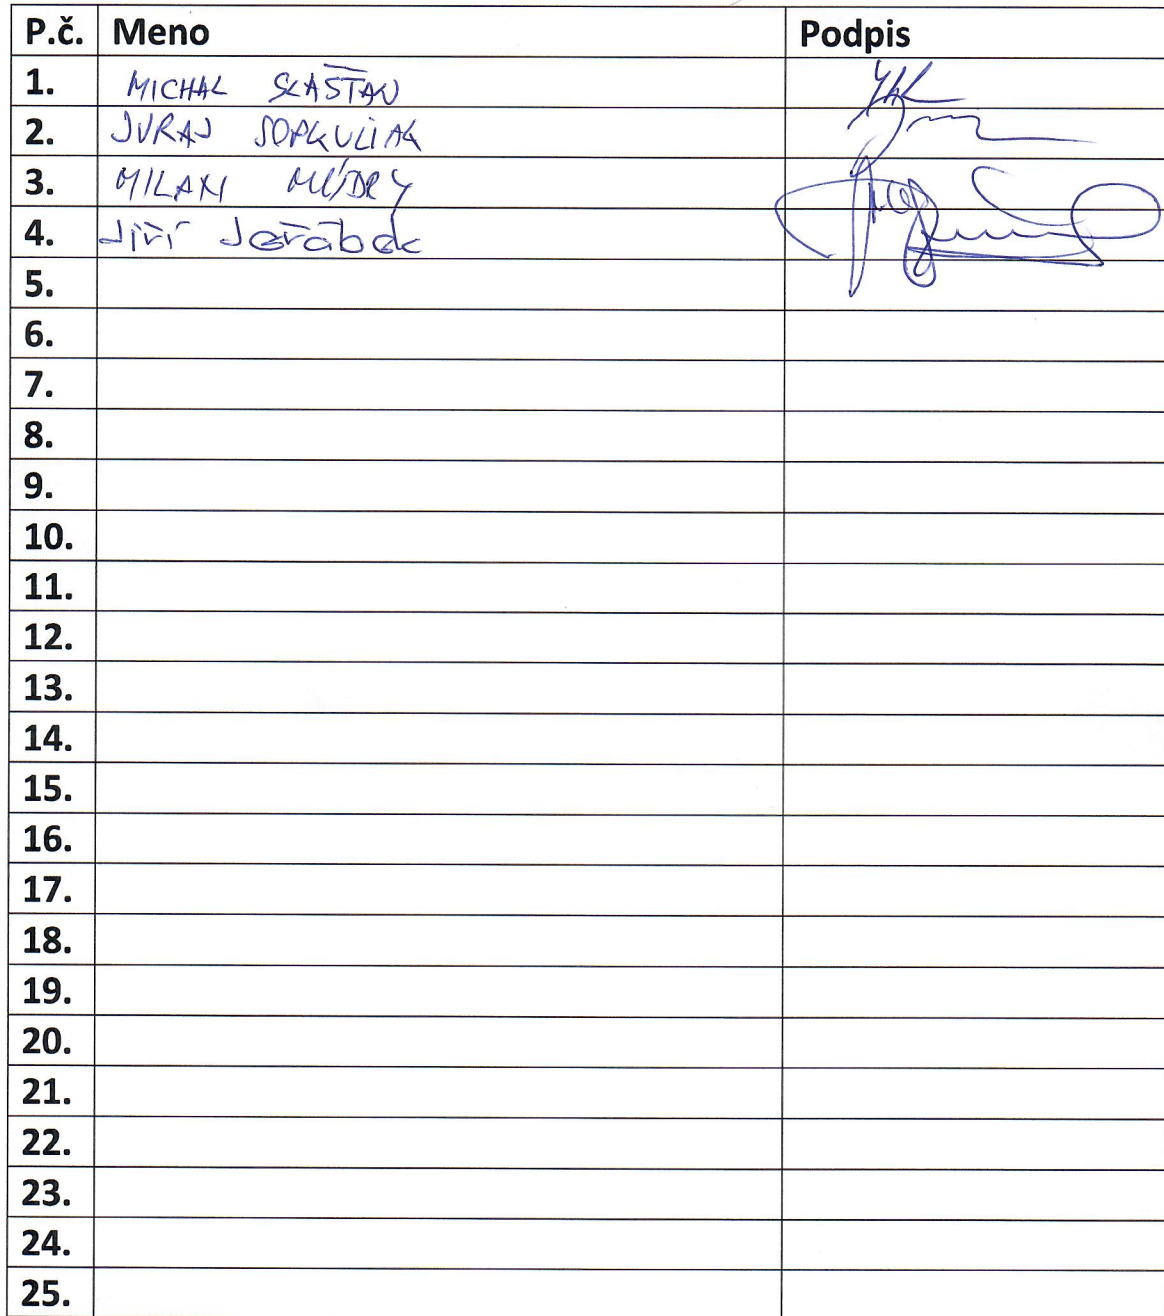 P.č. Meno Podpis
1. MICHAL SLAŠŤAN
2. JURAJ SOPKULIAK
3. MILAN MÚDRY
4. Jiří Jeřábek
5.
6.
7.
8.
9.
10.
11.
12.
13.
14.
15.
16.
17.
18.
19.
20.
21.
22.
23.
24.
25.